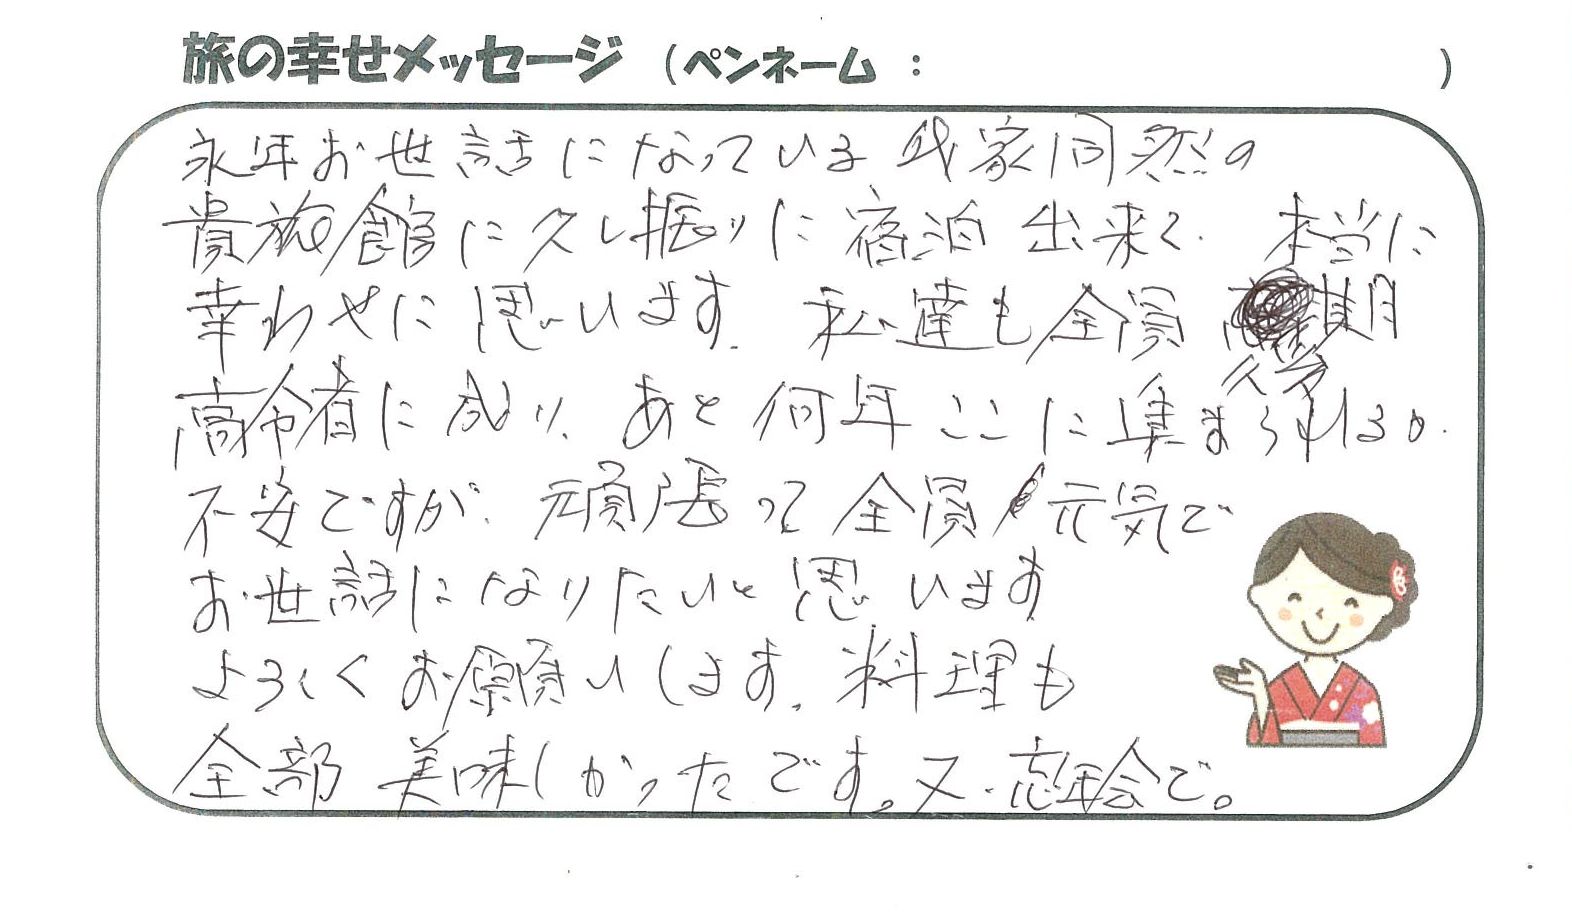 旅の幸せメッセージ (ペンネーム : )
永年お世話になっている我家同然の
貴旅館に久し振りに宿泊出来て、本当に
幸わせに思います。私達も全員後期
高齢者に成り、あと何年ここに集まられるか、
不安ですが、頑張って全員元気で
お世話になりたいと思います
よろしくお願いします。料理も
全部美味しかったです。又、忘年会で。